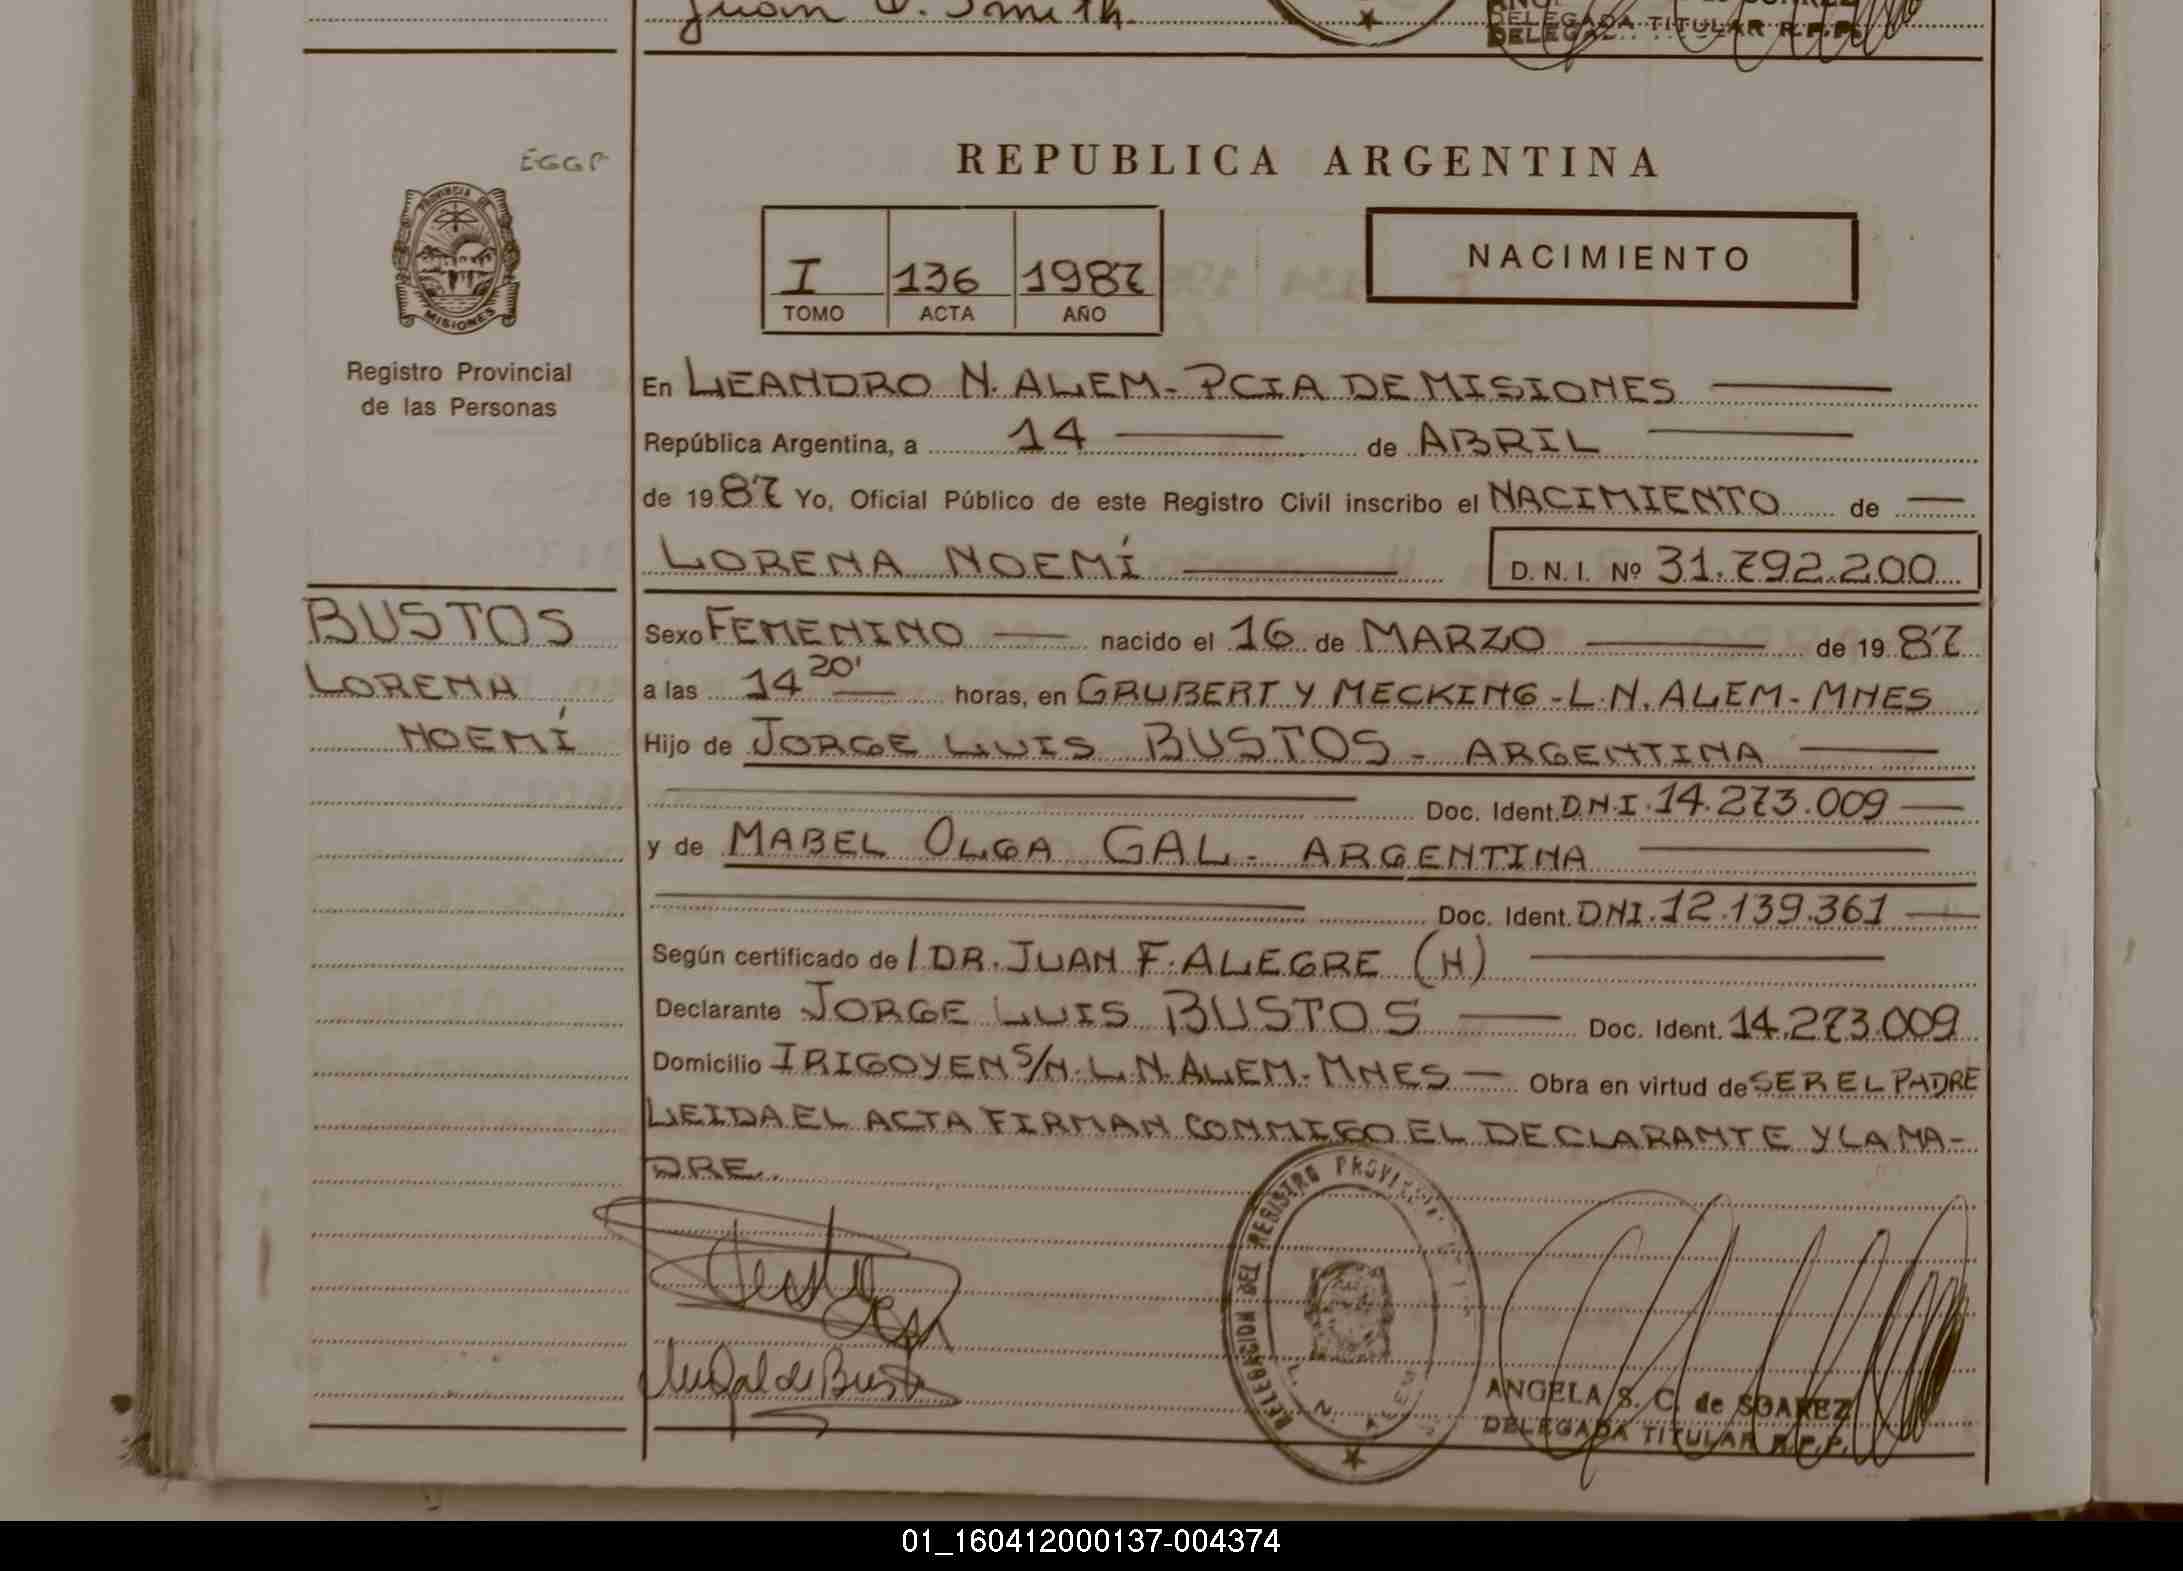 Juan O. Smith.
DELEGADA TITULAR R.P.P.
EGGP
PROVINCIA DE
MISIONES
Registro Provincial
de las Personas
REPUBLICA ARGENTINA
I 136 1987
TOMO ACTA AÑO
NACIMIENTO
En LEANDRO N. ALEM - PCIA DE MISIONES
República Argentina, a 14 de ABRIL
de 1987 Yo, Oficial Público de este Registro Civil inscribo el NACIMIENTO de
LORENA NOEMÍ D. N. I. Nº 31.792.200
BUSTOS
LORENA
NOEMÍ
Sexo FEMENINO nacido el 16 de MARZO de 1987
a las 14 20' horas, en GRUBERT Y MECKING - L.N. ALEM - MNES
Hijo de JORGE LUIS BUSTOS - ARGENTINA
Doc. Ident. D.N.I. 14.273.009
y de MABEL OLGA GAL - ARGENTINA
Doc. Ident. DNI. 12.139.361
Según certificado de / DR. JUAN F. ALEGRE (H)
Declarante JORGE LUIS BUSTOS Doc. Ident. 14.273.009
Domicilio IRIGOYEN S/N. L.N. ALEM - MNES - Obra en virtud de SER EL PADRE
LEIDA EL ACTA FIRMAN CONMIGO EL DECLARANTE Y LA MA-
DRE.
DELEGACION DEL REGISTRO
L. N. ALEM
M Gal de Bustos
ANGELA S. C. de SOAREZ
DELEGADA TITULAR R.P.P.
01_160412000137-004374